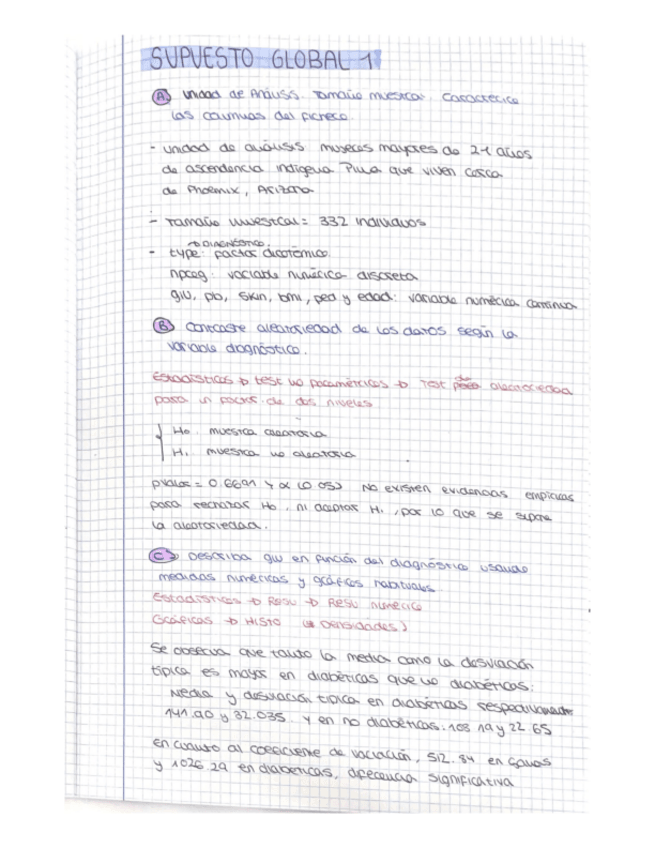 SUPUESTO GLOBAL 1
A) Unidad de Análisis. Tamaño muestral. Caracterice
las columnas del fichero.
- Unidad de análisis mujeres mayores de 21 años
de ascendencia indígena Pima que viven cerca
de Phoenix, Arizona
- Tamaño muestral = 332 individuos
→ DIAGNÓSTICO
- type: factor dicotómico
npreg: variable numérica discreta
glu, pb, skin, bmi, ped y edad: variable numérica continua
B) Contraste aleatoriedad de los datos según la
variable diagnóstico.
Estadísticos → test no paramétricos → Test de aleatoriedad
para un factor de dos niveles
H0: muestra aleatoria
H1: muestra no aleatoria
pvalor = 0.6691 > α (0.05) No existen evidencias empíricas
para rechazar H0, ni aceptar H1, por lo que se supone
la aleatoriedad.
C) Describa glu en función del diagnóstico usando
medidas numéricas y gráficos habituales
Estadísticos → Resu → Resu numérico
Gráficas → HISTO (Densidades)
Se observa que tanto la media como la desviación
típica es mayor en diabéticas que no diabéticas:
Media y desviación típica en diabéticas respectivamente
141.90 y 32.035 y en no diabéticas: 108.19 y 22.65
en cuanto al coeficiente de variación, 512.84 en sanas
y 1026.29 en diabéticas, diferencia significativa